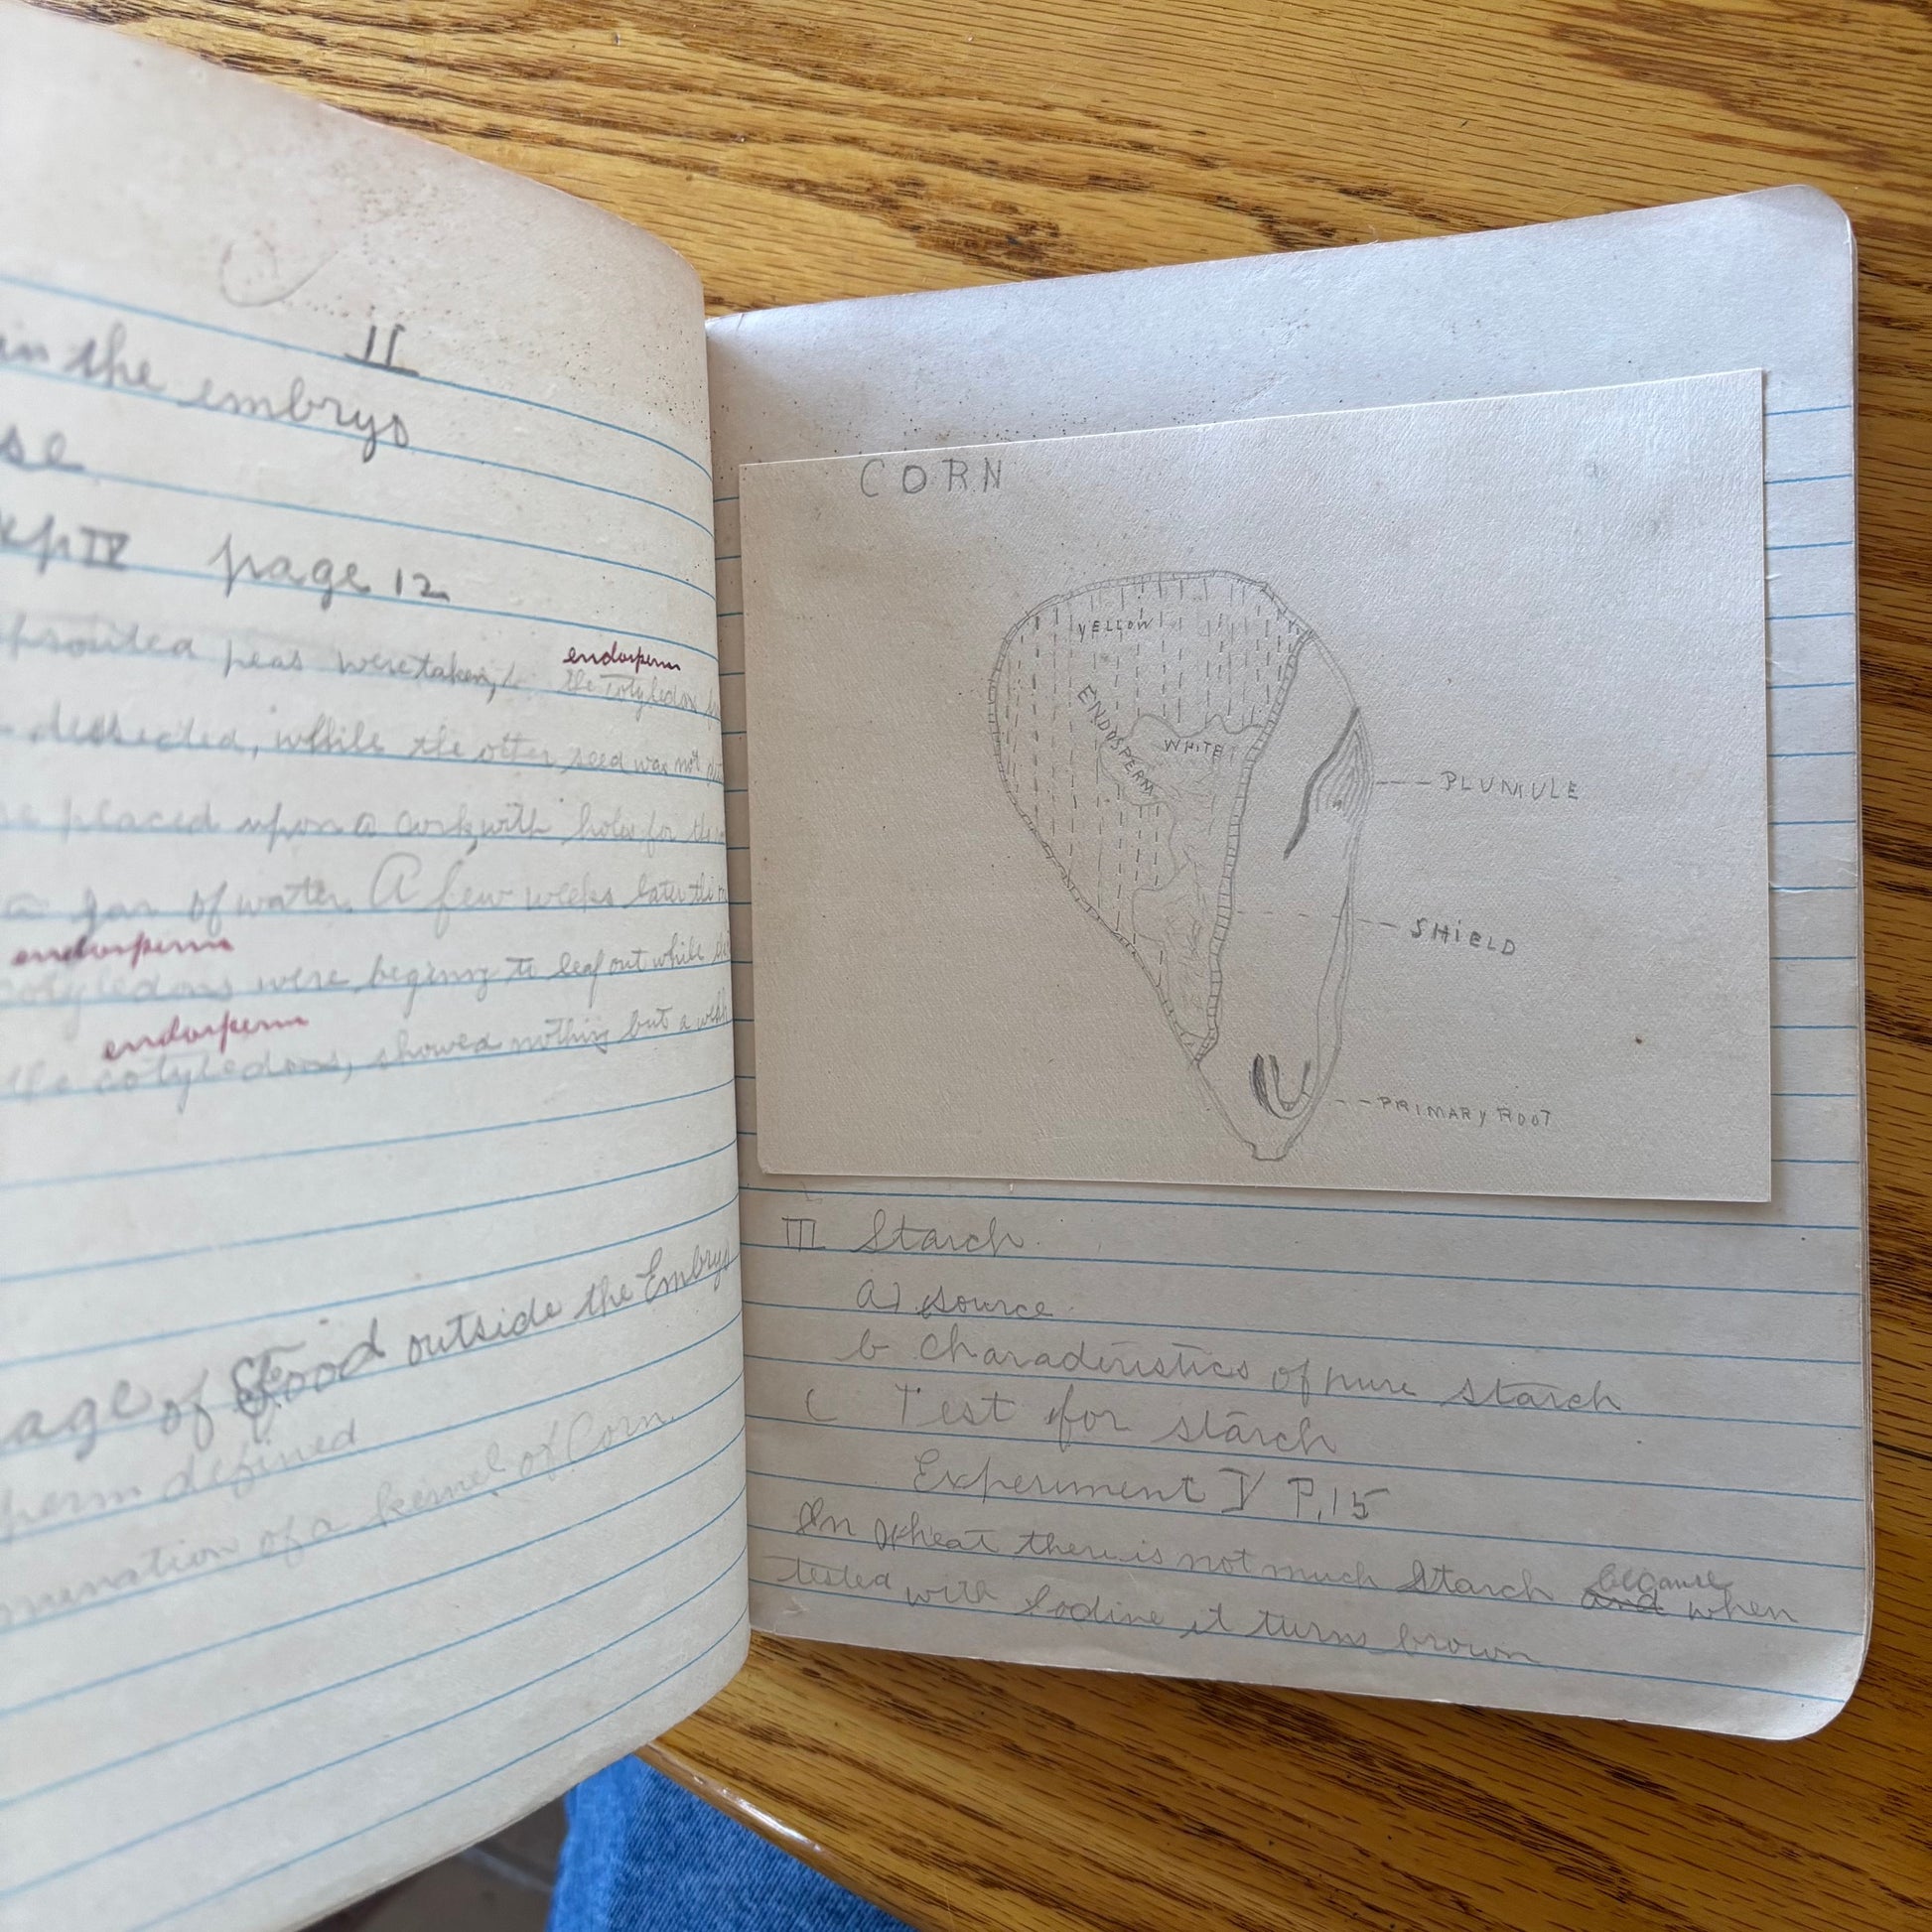 II
in the embryo
se
xp IV page 12
sprouted peas were taken, endosperm
the cotyledons
dessected, while the other seed was not
placed upon a cork, with holes for the
a jar of water. A few weeks later the
endosperm
cotyledons were begining to leaf out while
endosperm
the cotyledons, showed nothing but a
age of food outside the Embryo
perm defined
mination of a kernel of Corn
CORN
YELLOW
ENDOSPERM
WHITE
PLUMULE
SHIELD
PRIMARY ROOT
III Starch
a) source
b Characteristics of pure starch
C Test for starch
Experiment V P.15
because
In Wheat there is not much Starch and when
tested with Iodine it turns brown